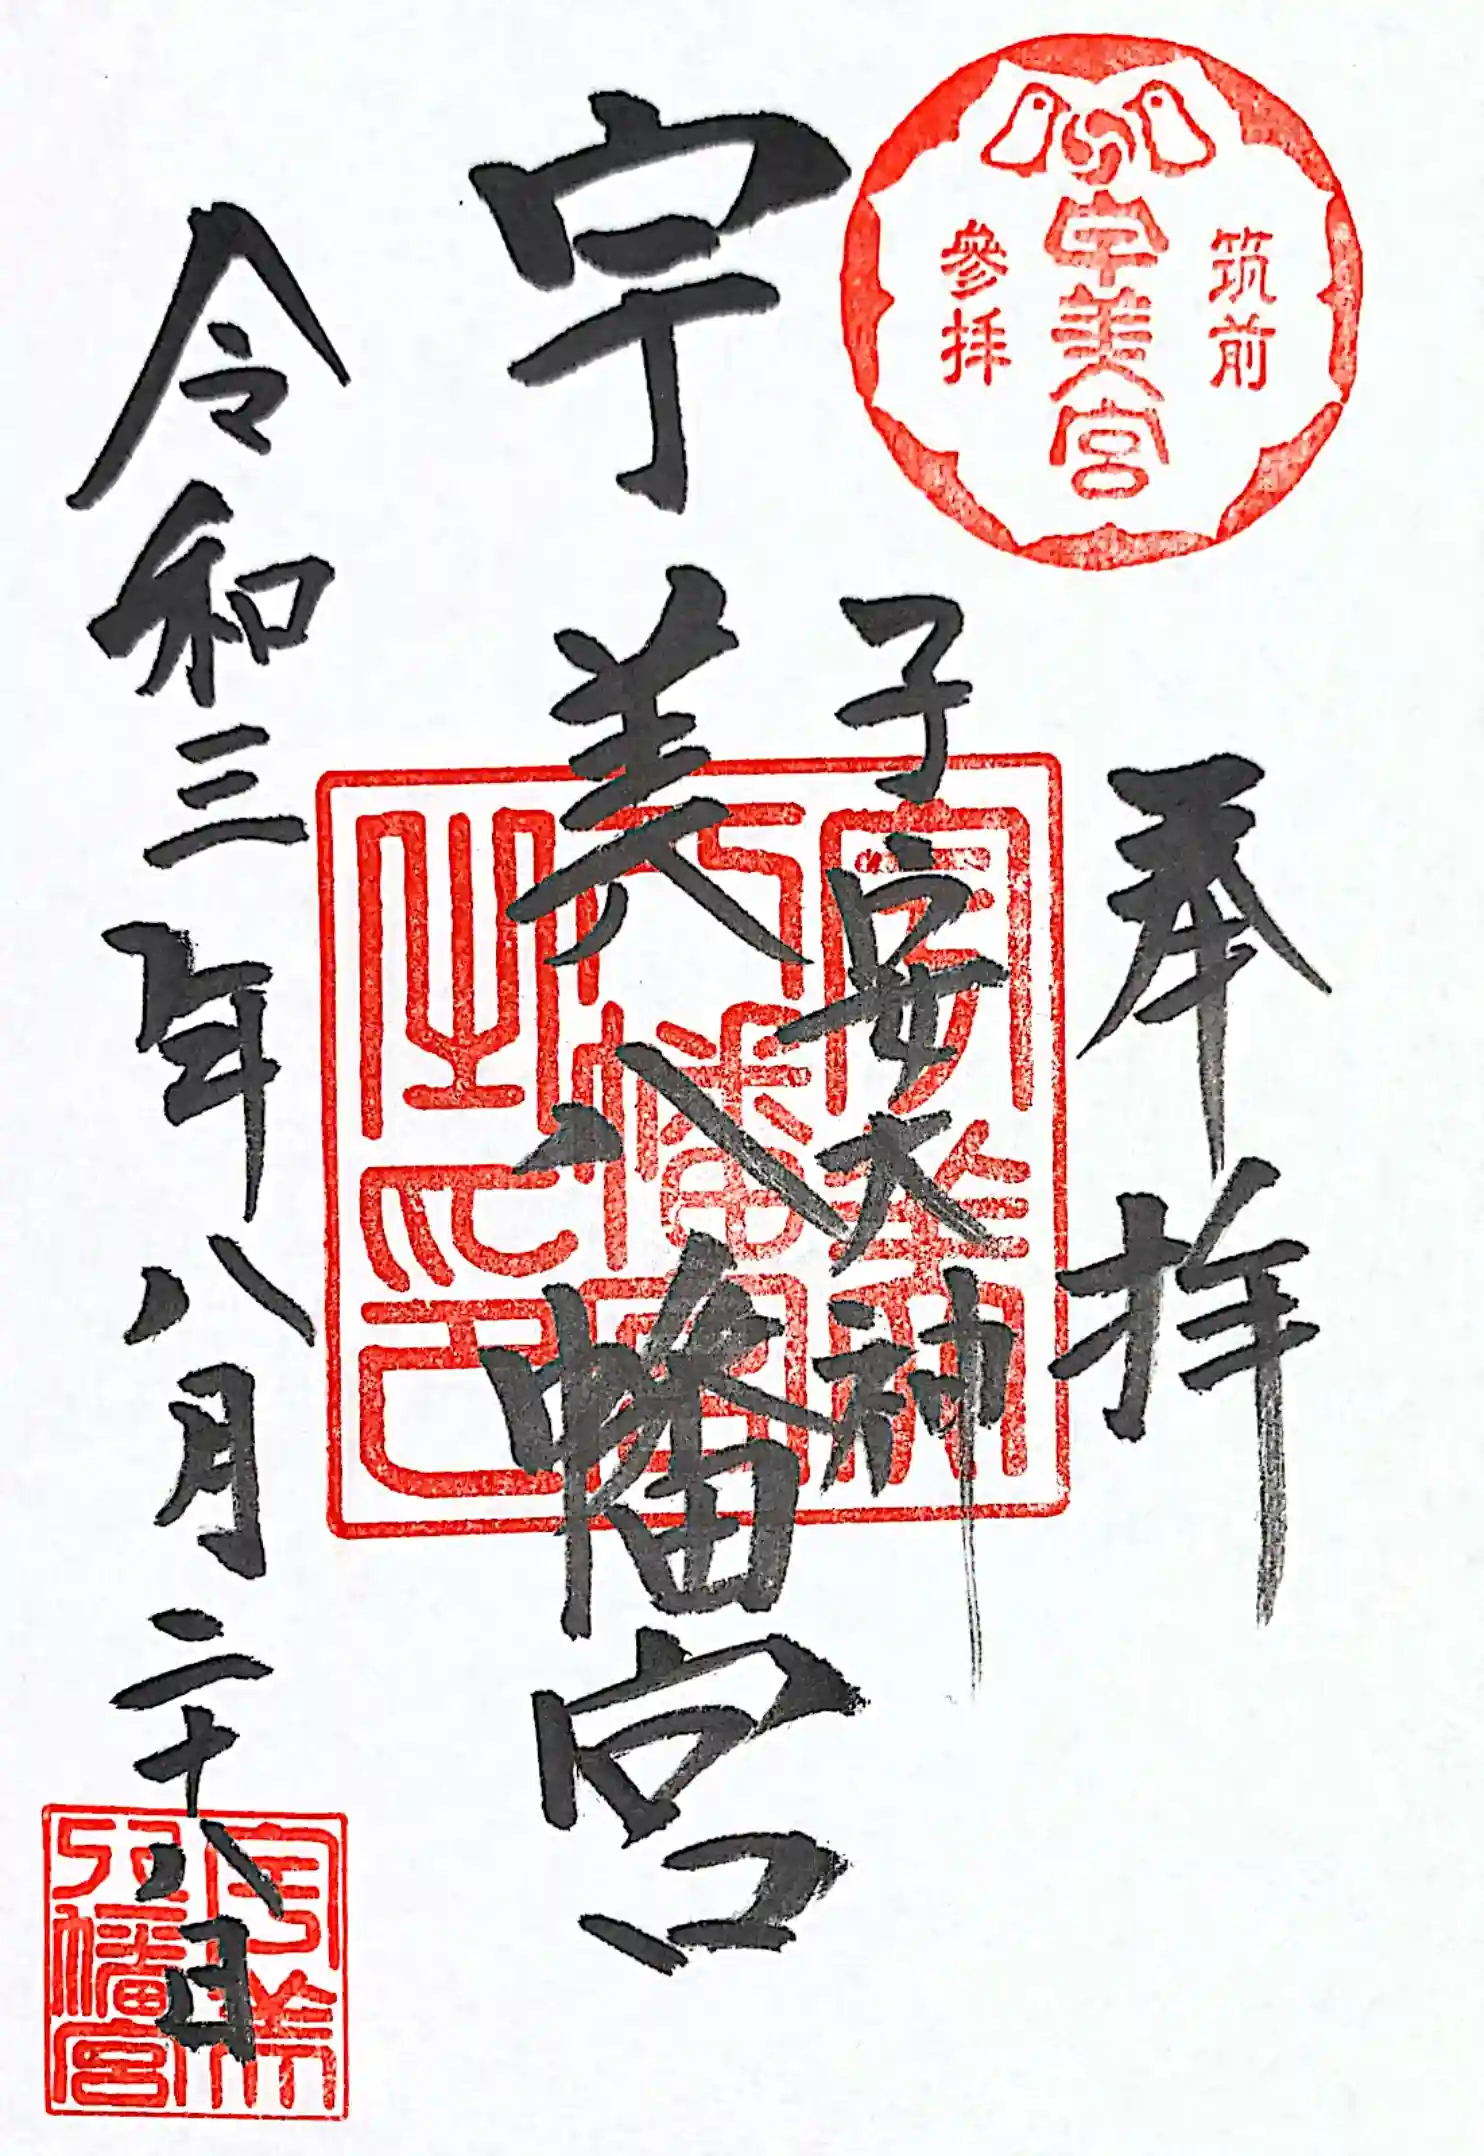 筑前
宇美宮
參拝
奉拝
子安大神
宇美八幡宮
令和三年八月二十八日
宇美
八幡宮
之印
宇美
八幡宮